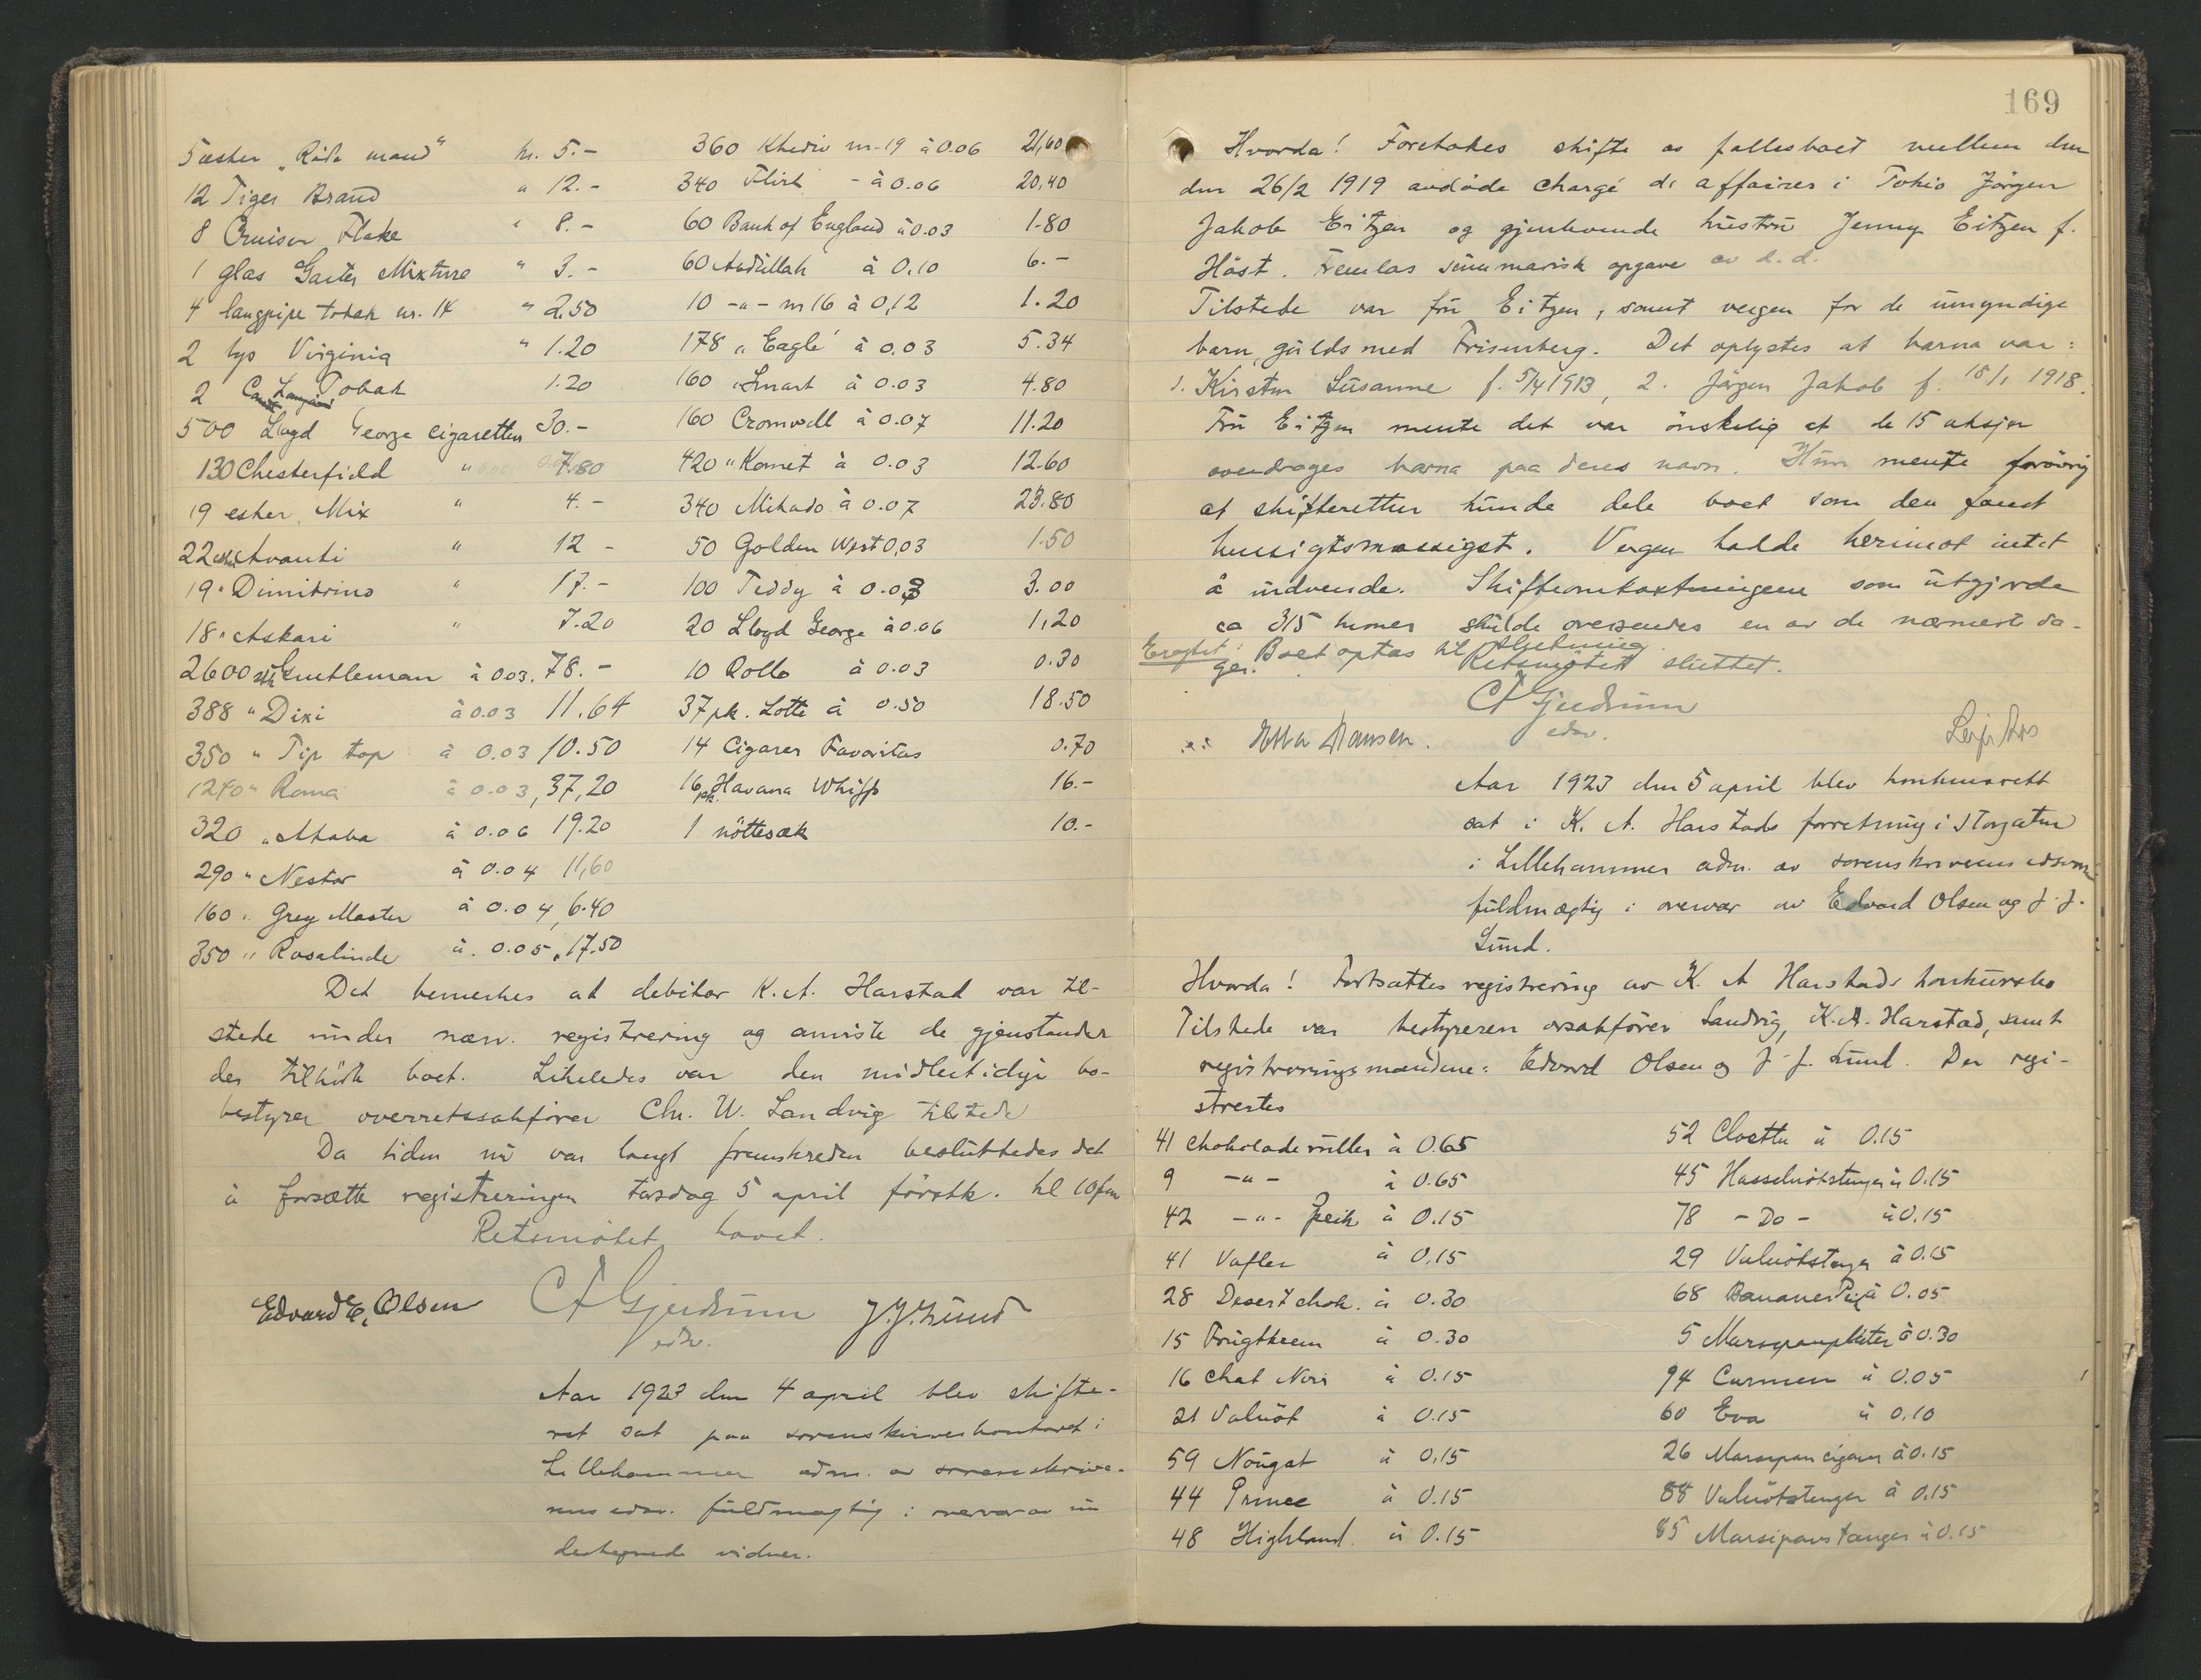 5 æsker "Røde mand" kr. 5.-
12 Tiger Brand " 12.-
8 Cruiser Flake " 8.-
1 glas Garter Mixture " 3.-
4 langpipe tobak nr. 14 " 2,50
2 lys Virginia " 1.20
2 Tobak 1.20
500 Lloyd George cigaretter 30.-
130 Chesterfield " 7.80
19 esker Mix " 4.-
22 esk Avanti " 12 -
19 " Dimitrino " 17.-
18 " Askari " 7.20
2600 stk Gentleman à 0.03. 78.-
388 " Dixi à 0.03 11.64
350 " Tip top à 0.03 10.50
1240 " Roma à 0.03, 37,20
320 " Akaba à 0.06 19.20
290 " Nestor à 0.04 11,60
160 " Grey Master à 0.04, 6.40
350 " Rosalinde à 0.05, 17.50
360 Khediv nr. 19 à 0.06 21,60
340 Flirt - à 0.06 20,40
60 Bank of England à 0.03 1.80
60 Abdullah à 0,10 6.-
10 -"- nr 16 à 0,12 1.20
178 "Eagle" à 0,03 5.34
160 "Smart à 0.03 4.80
160 Cromwell à 0.07 11.20
420 "Komet à 0.03 12.60
340 Mikado à 0.07 23.80
50 Golden West 0,03 1.50
100 Teddy à 0.03 3.00
20 Lloyd George à 0.06 1,20
10 Rollo à 0.03 0.30
37 pk. Lotte à 0.50 18.50
14 Cigarer Favoritas 0.70
16 pk. Havana Whiffs 16.-
1 nöttesæk 10.-
Det bemerkes at debitor K. A. Harstad var til-
stede under næv. registrering og anviste de gjenstander
der tilhörte boet. Likeledes var den midlertidige bo-
bestyrer overretssakfører Chr. W. Landvig tilstede
Da tiden nu var langt fremskreden besluttedes det
å forsætte registreringen torsdag 5 april förstk. kl 10 fm
Retsmötet hævet.
Edvard E. Olsen CF Gjerdrum J. J. Lund
edsv.
Aar 1923 den 4 april blev skifte-
ret sat paa sorenskriverkontoret i
Lillehammer adm. av sorenskrive-
rens edsv. fuldmægtig i overvær av un
dertegnede vidner.
169
Hvorda! Foretokes skifte av fællesboet mellem den
den 26/2 1919 avdöde chargé d' affaires i Tokio Jörgen
Jakob Eitzen og gjenlevende hustru Jenny Eitzen f.
Höst. Fremlas summarisk opgave av d.d.
Tilstede var fru Eitzen, samt vergen for de umyndige
barn, guldsmed Frisenberg. Det oplystes at barna var:
1. Kirsten Susanne f. 5/4 1913, 2. Jörgen Jakob f. 18/1 1918.
Fru Eitzen mente det var önskelig at de 15 aksjer
overdrages barna paa deres navn. Hun mente forövrig
at skifteretten kunde dele boet som den fandt
hensigtsmæssigst. Vergen hadde herimot intet
å indvende. Skifteomkostningene som utgjorde
ca 315 kroner skulde oversendes en av de nærmeste da-
ger.
Eragtet: Boet optas til slutning
Retsmötet sluttet.
CF Gjerdrum
edsv.
Hansen.
Aar 1923 den 5 april blev konkursrett
sat i K. A. Harstads forretning i Storgaten
i Lillehammer adm. av sorenskriverens edsvorne
fuldmægtig i overvær av Edvard Olsen og J. J.
Lund.
Hvorda! Fortsattes registrering av K. A Harstads konkursbo
Tilstede var bestyreren orsakförer Landvig, K. A. Harstad, samt
registreringsmændene: Edvard Olsen og J. J. Lund. Der regi-
strertes
41 Chokoladeruller à 0.65
9 -"- à 0.65
42 -"- Peik à 0.15
41 Vafler à 0,15
28 Desert chok. à 0.30
15 Frugtkrem à 0.30
16 Chat Noir à 0.15
21 Valnöt à 0.15
59 Nougat à 0,15
44 Prince à 0.15
48 Highland à 0.15
52 Cloetta à 0.15
45 Hasselnötstenger à 0.15
78 - Do - à 0.15
29 Valnötstenger à 0.15
68 Bananer à 0.05
5 Marsipanplater à 0.30
94 Carmen à 0.05
60 Eva à 0,10
26 Marsipan cigarer à 0.15
88 Valnötstenger à 0.15
85 Marsipanstænger à 0.15